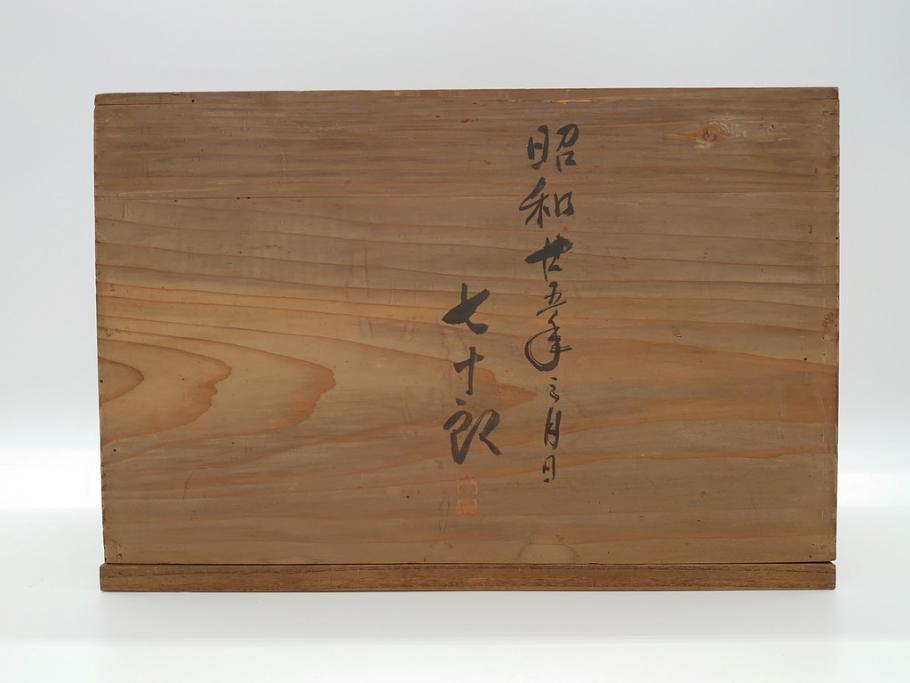 昭和廿五年三月日
七十郎